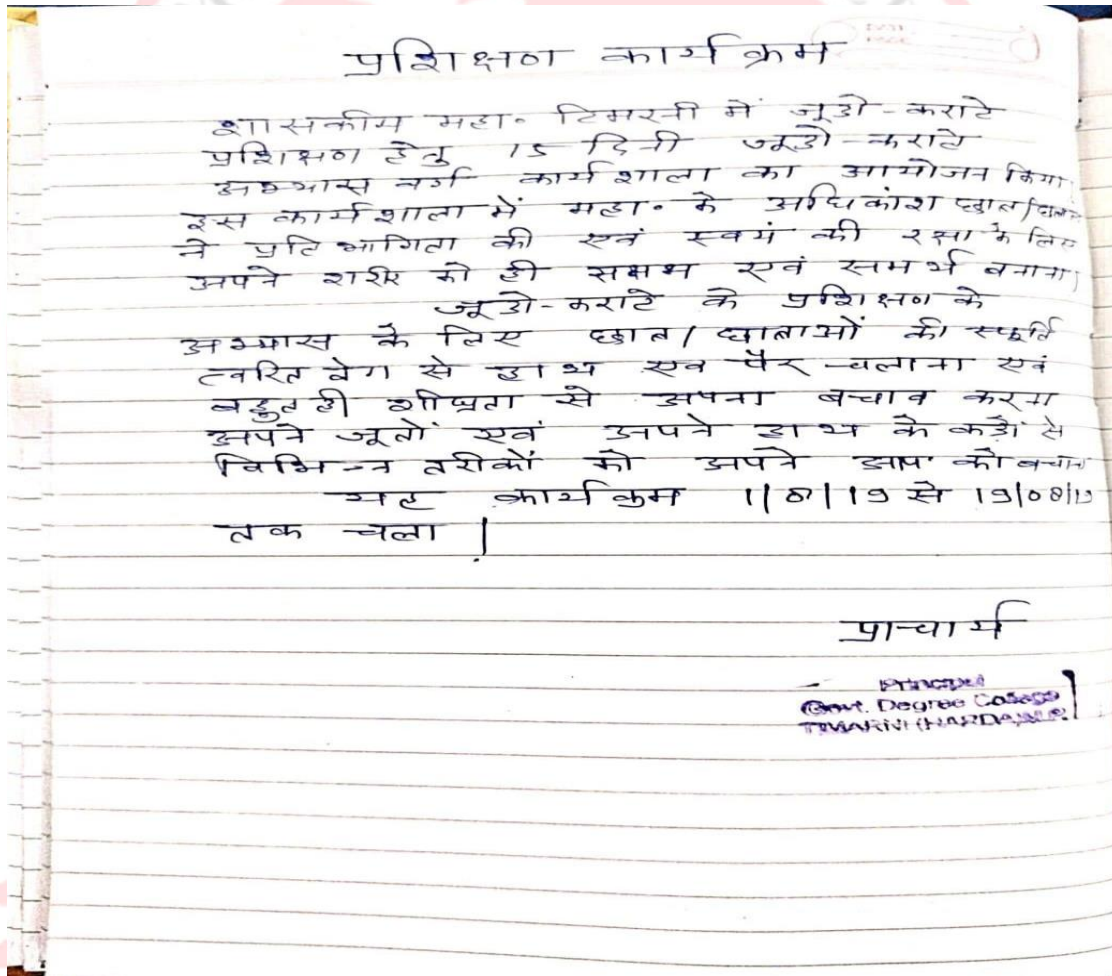 प्रशिक्षण कार्यक्रम
शासकीय महा॰ टिमरनी में जूडो-कराटे
प्रशिक्षण हेतु 15 दिनी जूडो-कराटे
अभ्यास वर्ग कार्यशाला का आयोजन किया
इस कार्यशाला में महा॰ के अधिकांश छात्र/
ने प्रतिभागिता की एवं स्वयं की रक्षा के लिए
अपने शरीर को ही सक्षम एवं समर्थ बनाना
जूडो-कराटे के प्रशिक्षण के
अभ्यास के लिए छात्र/छात्राओं की स्फूर्ति
त्वरित वेग से हाथ एव पैर चलाना एवं
बहुत ही शीघ्रता से अपना बचाव करना
अपने जूतों एवं अपने हाथ के कड़ों से
विभिन्न तरीकों को अपने आप को बचाना
यह कार्यक्रम 1/8/19 से 19/08/19
तक चला |
प्राचार्य
Principal
Govt. Degree College
TIMARNI (HARDA) M.P.